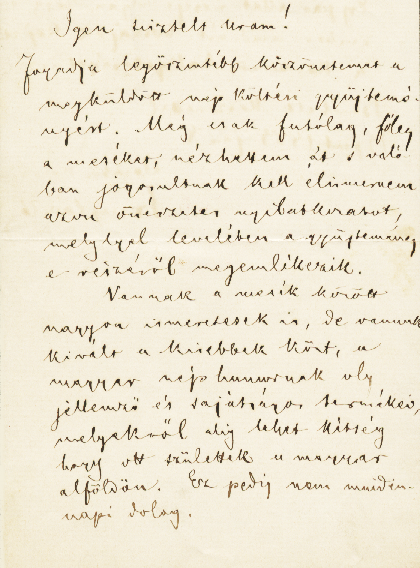 Igen tisztelt Uram!
Fogadja legőszintébb köszönetemet a
megküldött népköltési gyűjtemé
nyért. Még csak futólag, főleg
a meséket, nézhettem át s való
ban jogosultnak kell elismernem
azon önérzetes nyilatkozatot,
melylyel levelében a gyűjtemény
e részéről megemlékezik.
Vannak a mesék között
nagyon ismeretesek is, de vannak
kivált a kisebbek közt, a
magyar néphumornak oly
jellemző és sajátságos termékei,
melyekről alig lehet kétség
hogy ott születtek a magyar
alföldön. Ez pedig nem minden-
napi dolog.